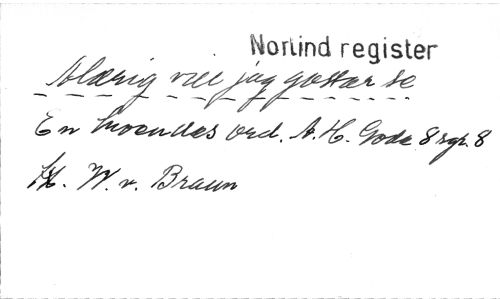 Norlind register
Aldrig vill jag gossar se
En hvendes ord. A. H. Gode 8 rgr. 8
H. W. v. Braun